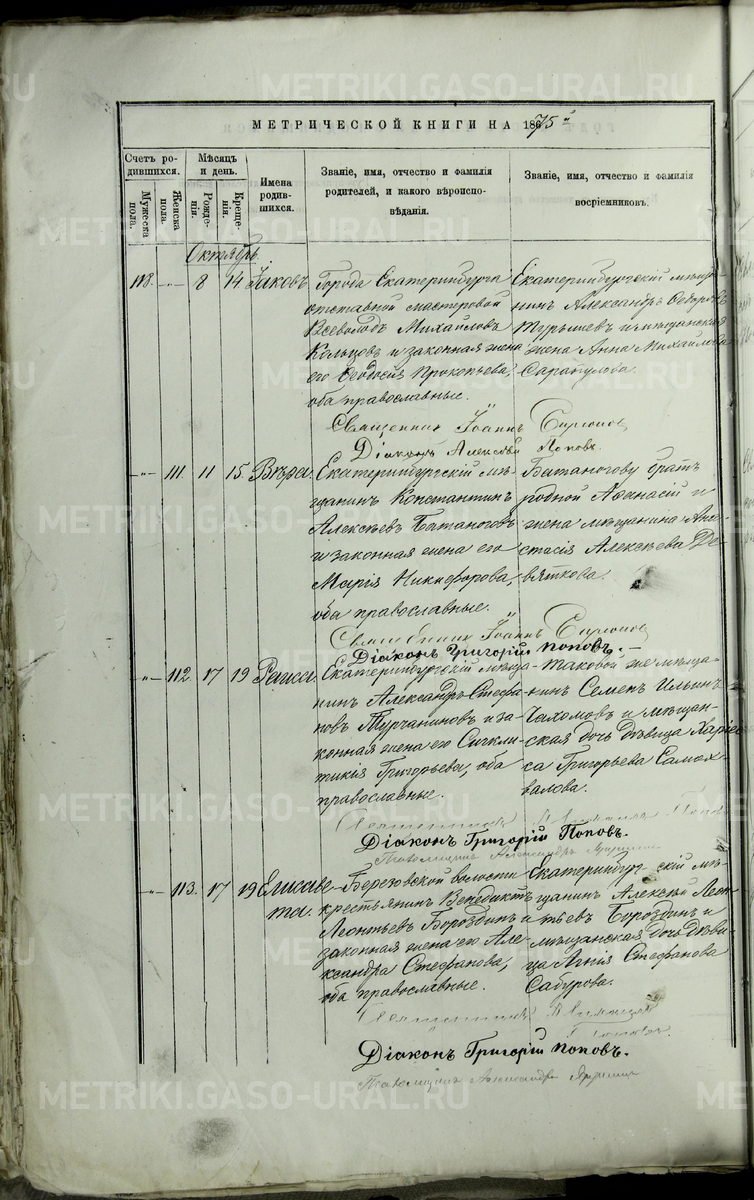 METRIKI.GASO-URAL.RU
МЕТРИЧЕСКОЙ КНИГИ НА 1875 й
Счетъ родившихся.
Мужеска пола.
Женска пола.
Мѣсяцъ и день.
Рожденія.
Крещенія.
Имена родившихся.
Званіе, имя, отчество и фамилія родителей, и какого вѣроисповѣданія.
Званіе, имя, отчество и фамилія воспріемниковъ.
Октябрь.
118. -„- 8 14 Іаковъ
Города Екатеринбурга
отставной мастеровой
Всеволодъ Михайловъ
Кольцовъ и законная жена
его Ѳеодосія Прокопьева,
оба православные.
Екатеринбургскій мѣща-
нинъ Александръ Ѳедоровъ
и мѣщанская
жена Анна Михайлова
Сарапулова.
Священникъ Іоаннъ
Діаконъ Алексѣй Поповъ.
-„- 111. 11 15. Вѣра.
Екатеринбургскій мѣ-
щанинъ Константинъ
Алексѣевъ Батаноговъ
и законная жена его
Марія Никифорова,
оба православные.
Батаногову братъ
родной Аѳанасій и
жена мѣщанина Ана-
стасія Алексѣева Де-
вяткова.
Священникъ Іоаннъ
Діаконъ Григорій Поповъ. -
-„- 112. 17 19 Раиса.
Екатеринбургскій мѣща-
нинъ Александръ Стефа-
новъ Турчаниновъ и за-
конная жена его Сигкли-
тикія Григорьева, оба
православные.
Таковой же мѣща-
нинъ Семенъ Ильинъ
Пахомовъ и мѣщан-
ская дочь дѣвица Харіес-
са Григорьева Самох-
валова.
Священникъ
Діаконъ Григорій Поповъ.
Псаломщикъ Александръ
-„- 113. 17 19 Елисаве-
та.
Березовской волости
крестьянинъ Венедиктъ
Леонтьевъ Бороздинъ и
законная жена его Але-
ксандра Стефанова,
оба православные.
Екатеринбургскій мѣ-
щанинъ Алексѣй Леон-
тьевъ Бороздинъ и
мѣщанская дочь дѣви-
ца Агнія Стефанова
Сабурова.
Священникъ
Поповъ.
Діаконъ Григорій Поповъ.
Псаломщикъ Александръ